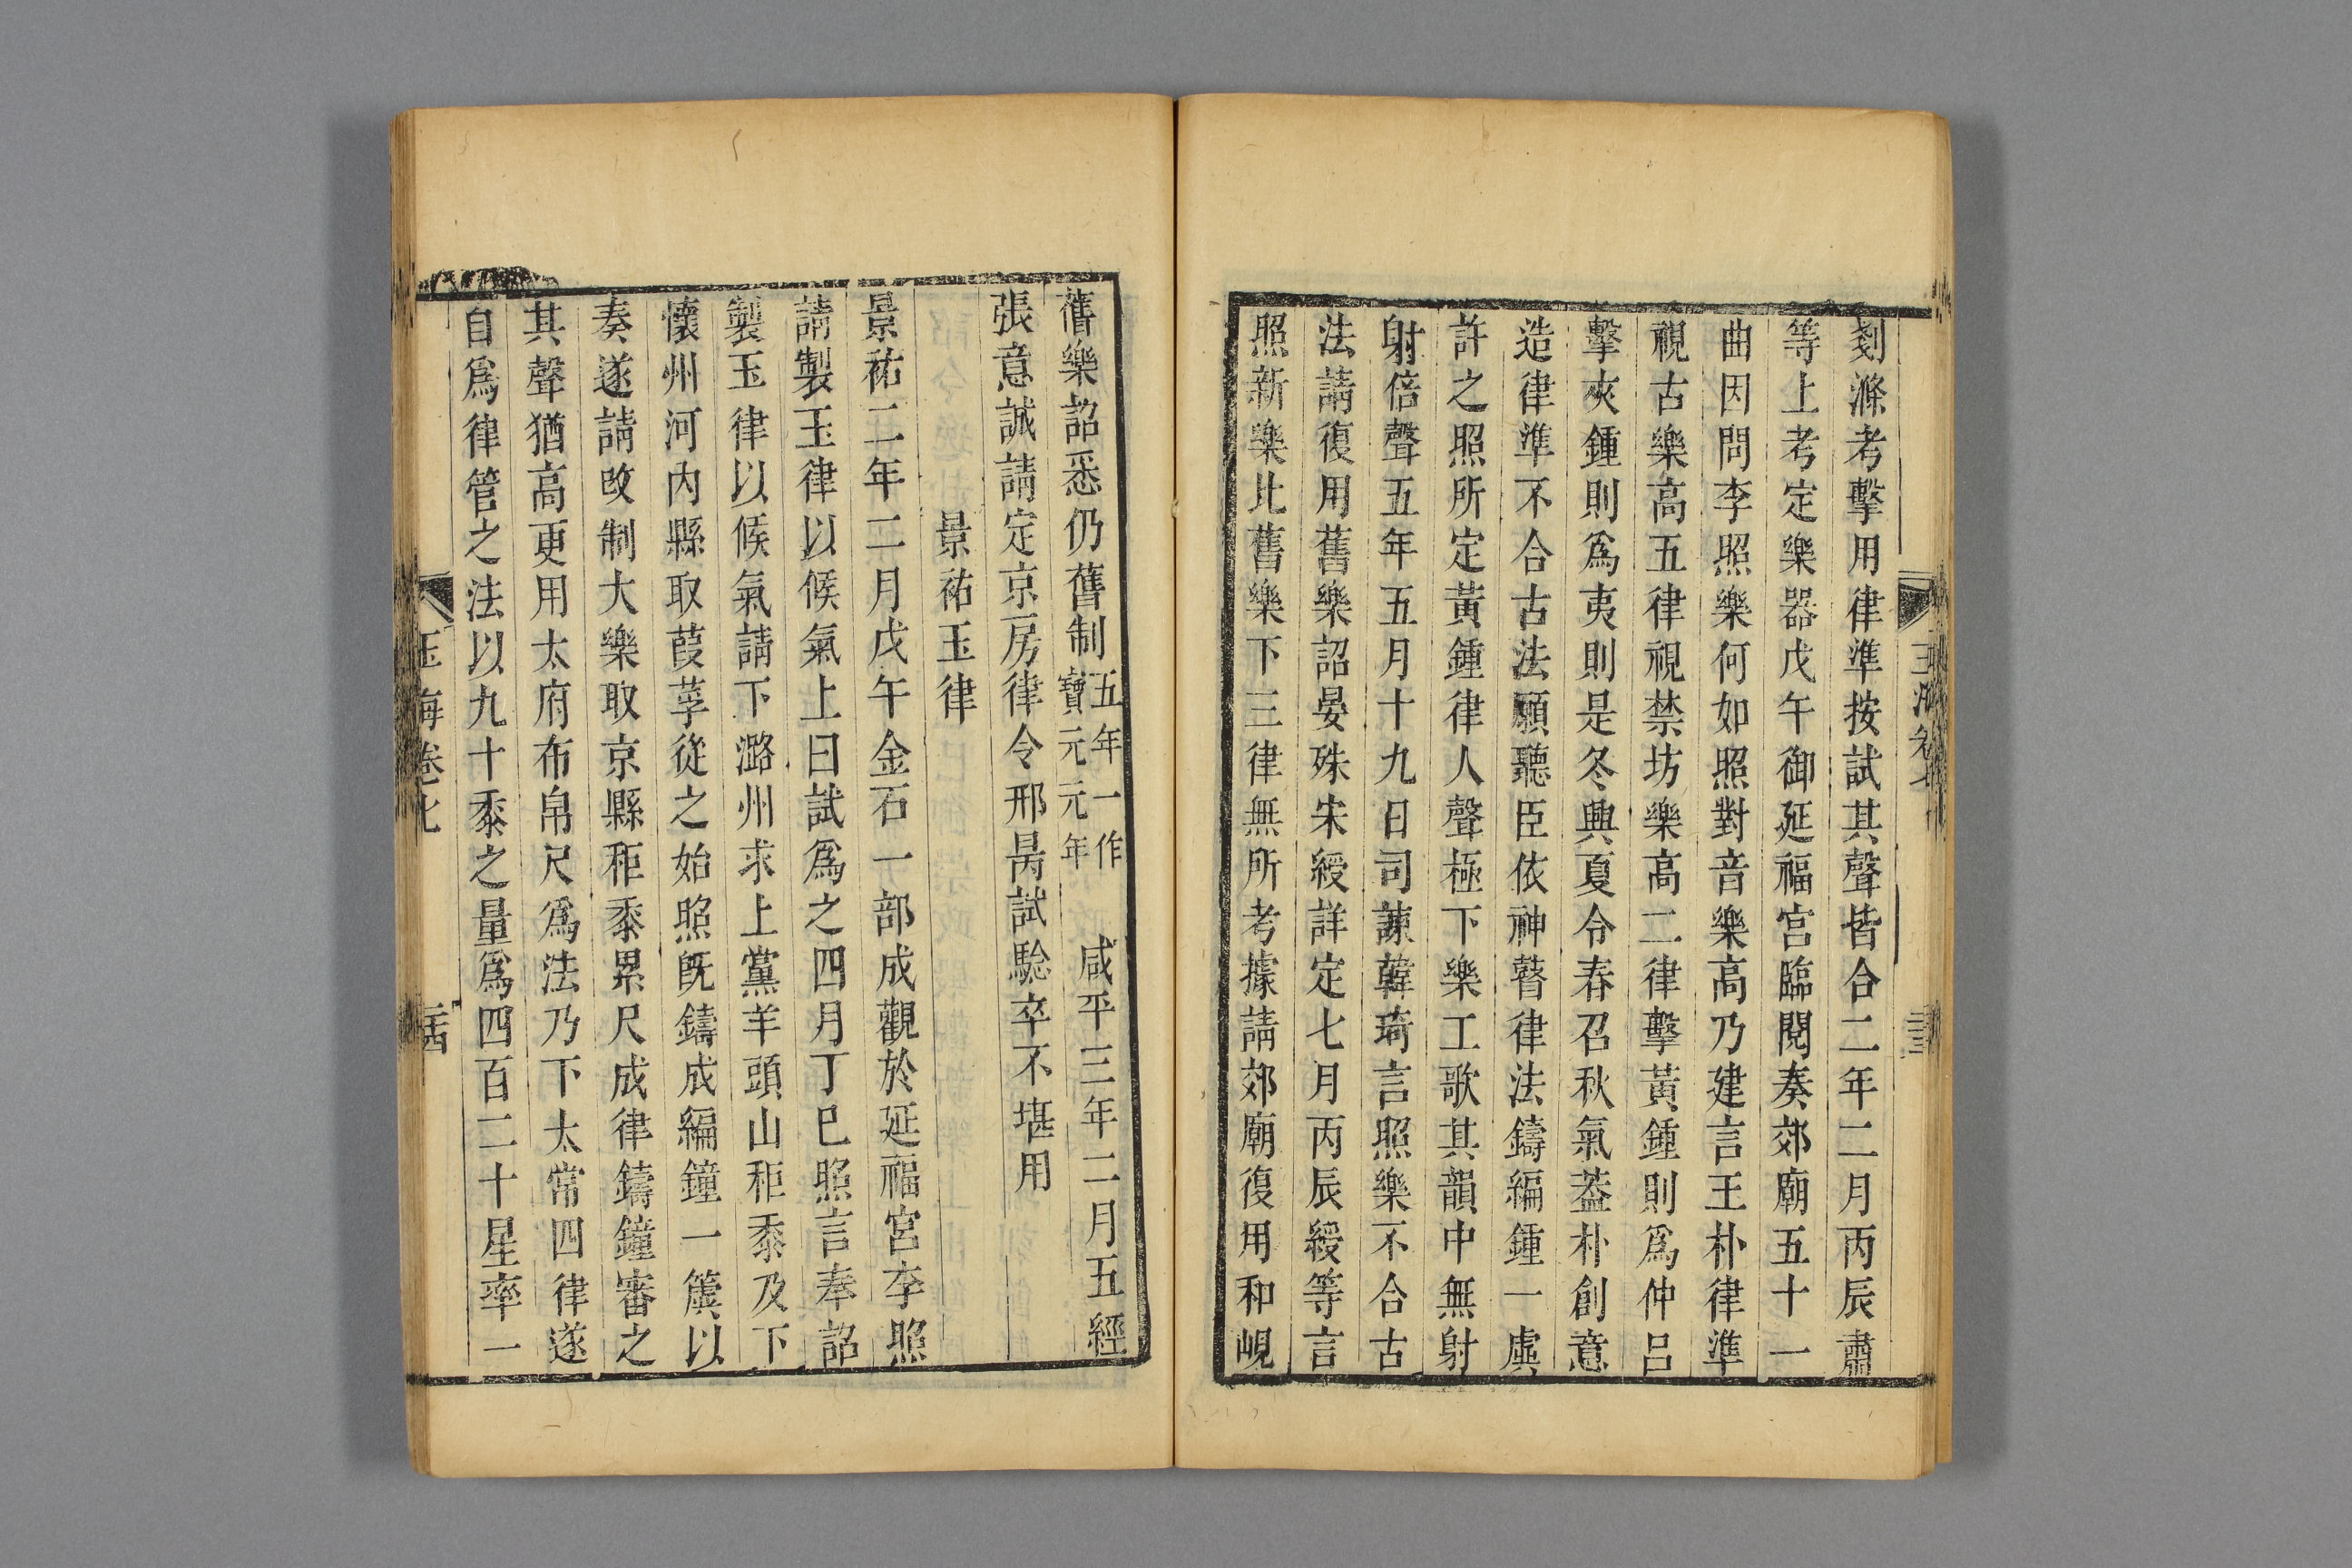 剗滌考擊用律準按試其聲皆合二年二月丙辰肅
等上考定樂器戊午御延福宮臨閱奏郊廟五十一
曲因問李照樂何如照對音樂高乃建言王朴律準
視古樂高五律視禁坊樂高二律擊黃鍾則爲仲呂
擊夾鍾則爲夷則是冬興夏令春召秋氣葢朴創意
造律準不合古法願聽臣依神瞽律法鑄編鍾一虡
許之照所定黃鍾律人聲極下樂工歌其韻中無射
射倍聲五年五月十九日司諫韓琦言照樂不合古
法請復用舊樂詔晏殊宋綬詳定七月丙辰綬等言
照新樂比舊樂下三律無所考據請郊廟復用和峴
舊樂詔悉仍舊制五年一作寶元元年 咸平三年二月五經
張意誠請定京房律令邢昺試驗卒不堪用
景祐玉律
景祐二年二月戊午金石一部成觀於延福宮李照
請製玉律以候氣上曰試爲之四月丁巳照言奉詔
製玉律以候氣請下潞州求上黨羊頭山秬黍及下
懷州河內縣取葭莩從之始照旣鑄成編鐘一簴以
奏遂請改制大樂取京縣秬黍累尺成律鑄鐘審之
其聲猶高更用太府布帛尺爲法乃下太常四律遂
自爲律管之法以九十黍之量爲四百二十星率一
玉海卷七